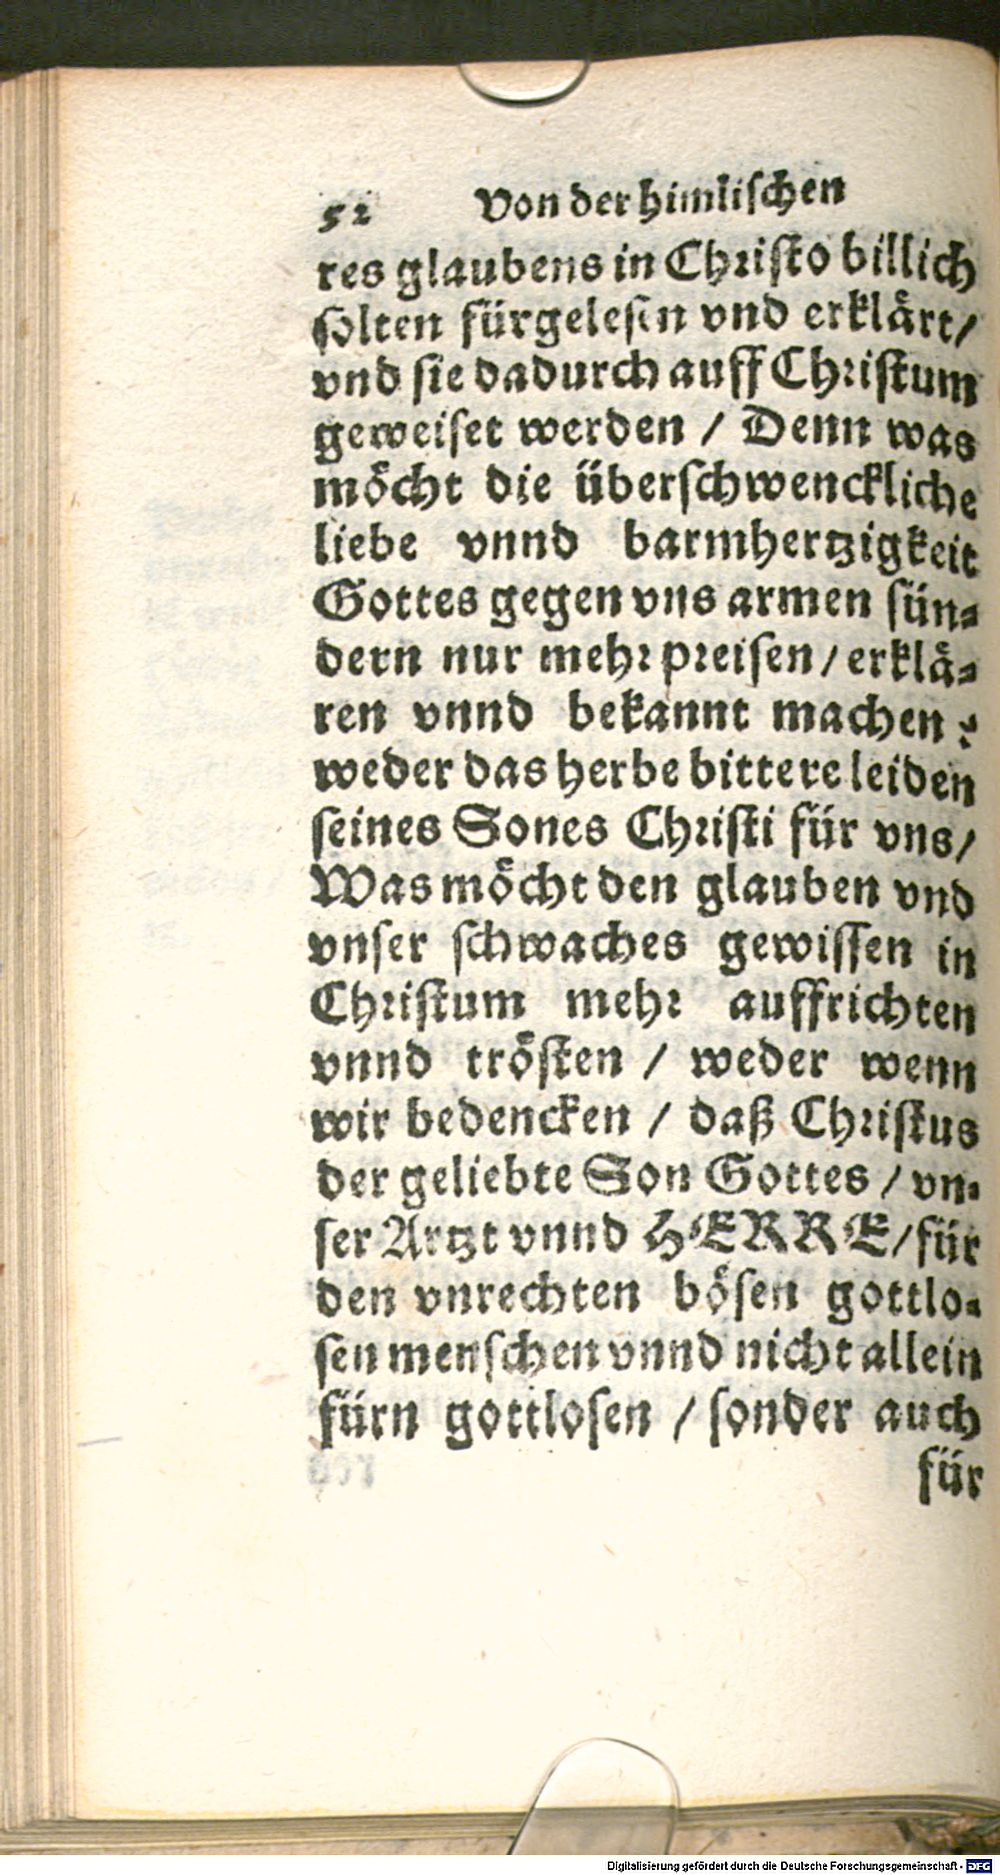 52 Von der himlischen
res glaubens in Christo billich
solten fürgelesen vnd erklärt/
vnd sie dadurch auff Christum
geweiset werden / Denn was
möcht die überschwenckliche
liebe vnnd barmhertzigkeit
Gottes gegen vns armen sün-
dern nur mehr preisen / erklä-
ren vnnd bekannt machen ?
weder das herbe bittere leiden
seines Sones Christi für vns/
Was möcht den glauben vnd
vnser schwaches gewissen in
Christum mehr auffrichten
vnnd trösten / weder wenn
wir bedencken / daß Christus
der geliebte Son Gottes / vn-
ser Artzt vnnd HERRE/ für
den vnrechten bösen gottlo-
sen menschen vnnd nicht allein
fürn gottlosen / sonder auch
für
Digitalisierung gefördert durch die Deutsche Forschungsgemeinschaft - DFG